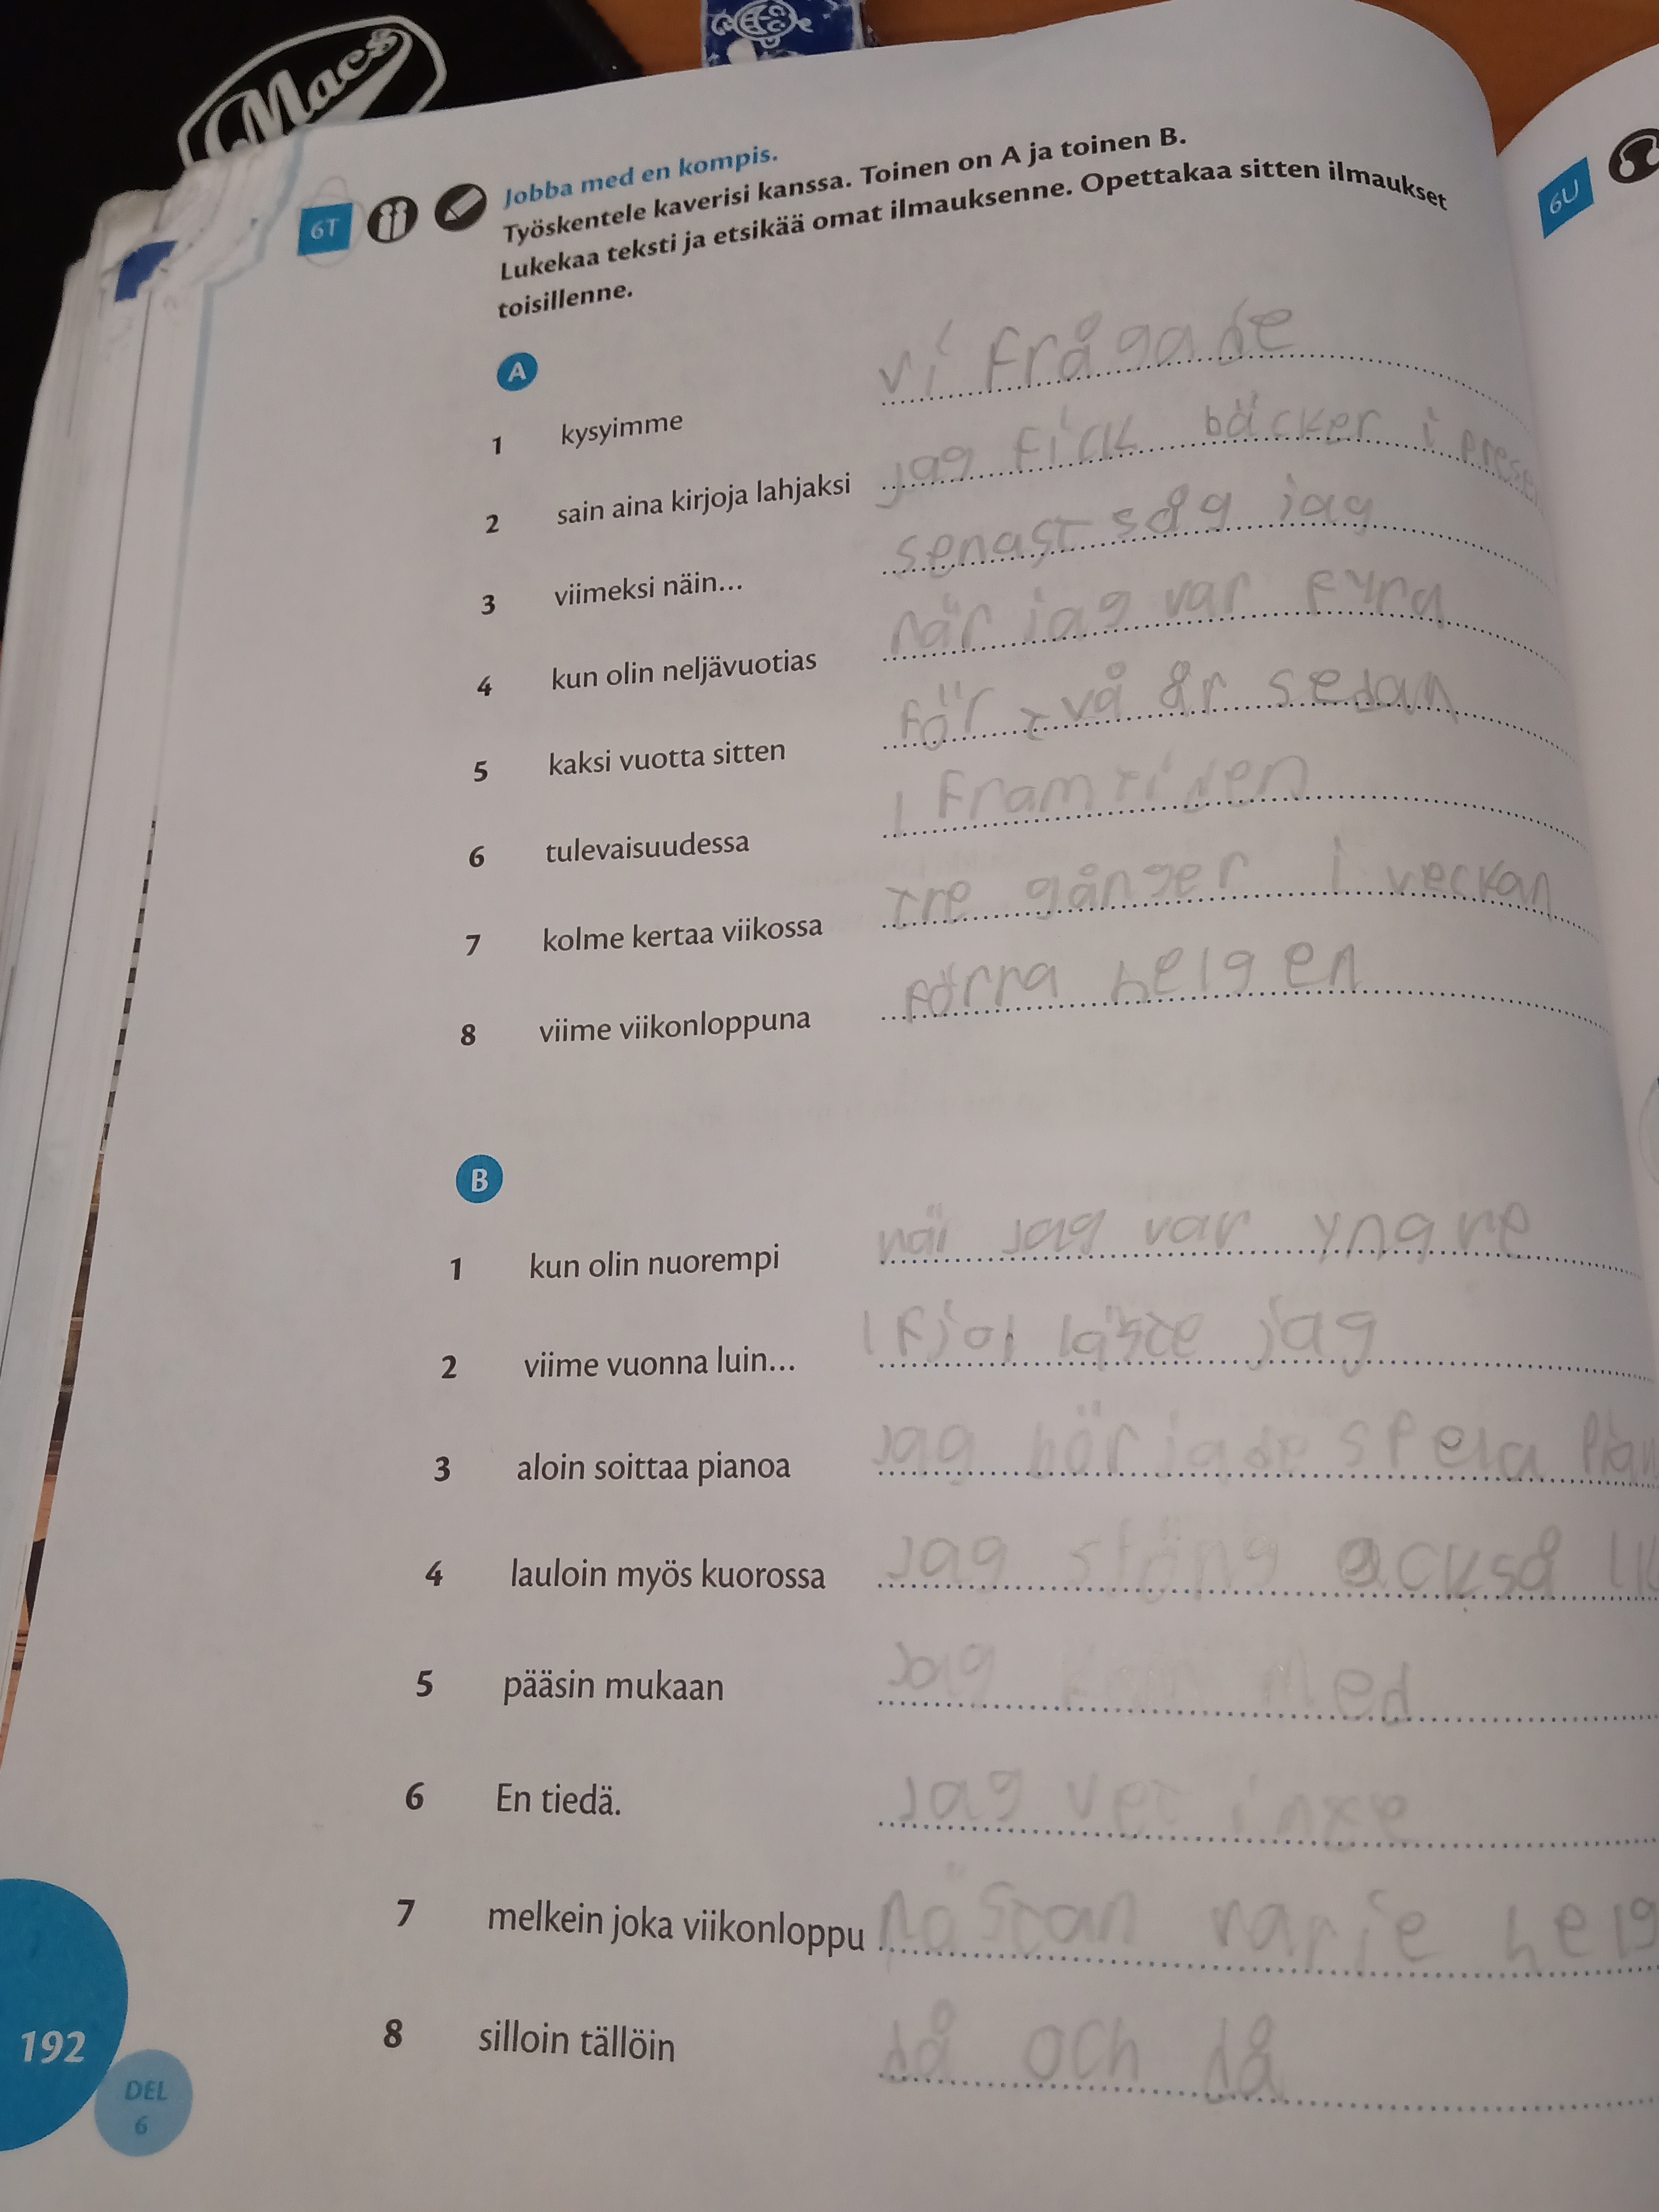 Macs
6T
Jobba med en kompis.
Työskentele kaverisi kanssa. Toinen on A ja toinen B.
Lukekaa teksti ja etsikää omat ilmauksenne. Opettakaa sitten ilmaukset
toisillenne.
6U
A
1 kysyimme vi frågade
2 sain aina kirjoja lahjaksi jag fick bäcker i prese
3 viimeksi näin... senast såg jag
4 kun olin neljävuotias när jag var fyra
5 kaksi vuotta sitten för två år sedan
6 tulevaisuudessa I framtiden
7 kolme kertaa viikossa tre gånger i veckan
8 viime viikonloppuna förra helgen
B
1 kun olin nuorempi när jag var yngre
2 viime vuonna luin... I fjol läste jag
3 aloin soittaa pianoa jag började spela pian
4 lauloin myös kuorossa Jag också
5 pääsin mukaan Jag med
6 En tiedä. Jag vet inte
7 melkein joka viikonloppu nästan varje helg
8 silloin tällöin då och då
192
DEL
6